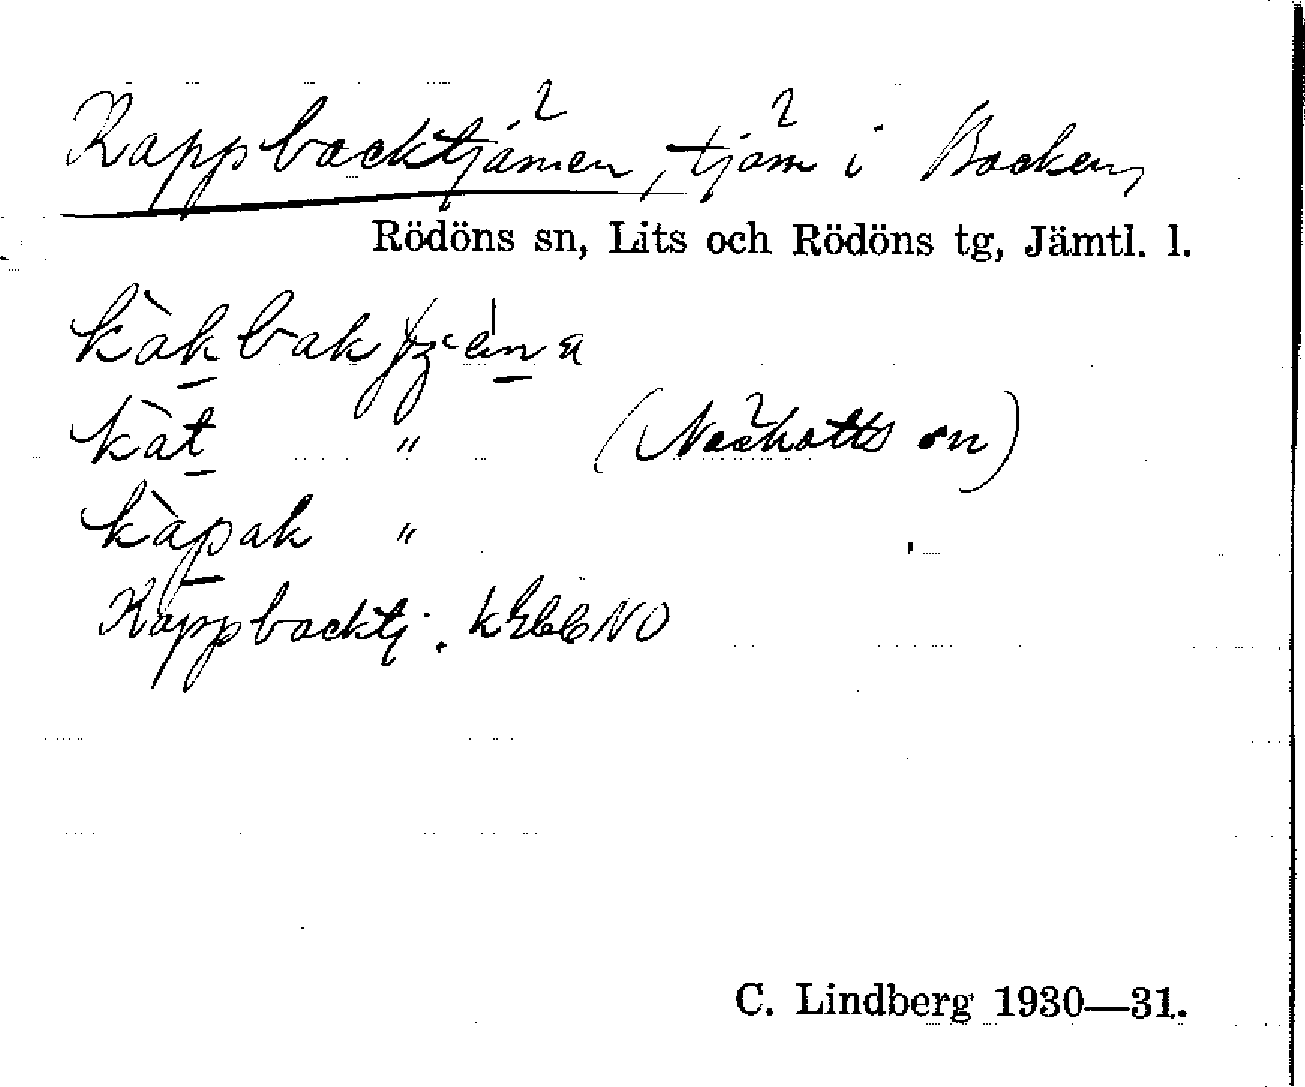 Kappbacktjänen, tjäm i Backen,
Rödöns sn, Lits och Rödöns tg, Jämtl. l.
kàk bak
kàt " (Näskotts sn)
kàpak "
Kappbacktj.
C. Lindberg 1930—31.